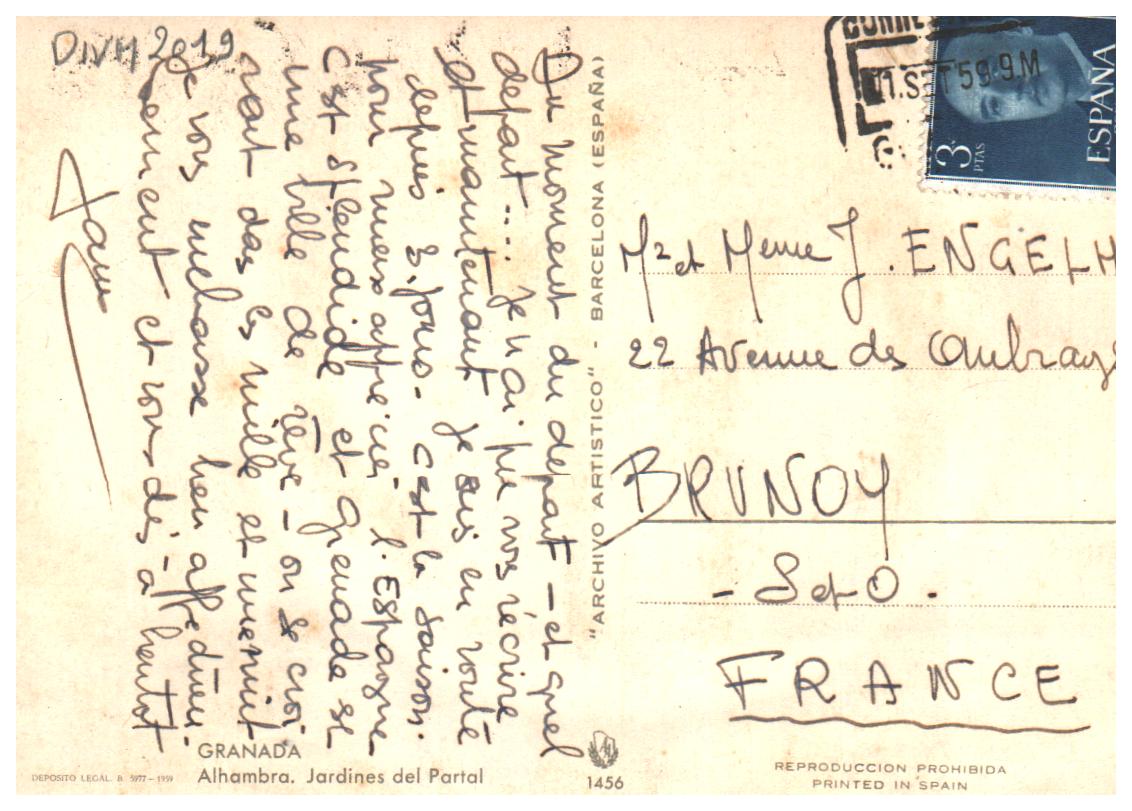 DIVM 2019
CORRE
11.SET 59·9M
3 PTAS
ESPAÑA
Du moment du depart – et quel
depart.... Je n'ai pu vous récrire
et maintenant je suis en route
depuis jours. c'est la saison
pour mieux apprécier l'Espagne
C'est splendide et Grenade est
une ville de rêve – on se croi
rait dans les mille et une nuit
Je vous embrasse bien affectueu-
sement et vous dis à bientot
"ARCHIVO ARTISTICO" - BARCELONA (ESPAÑA)
Mr et Meme J. ENGELH
22 Avenue des Ombrag
BRUNOY
- S et O -
FRANCE
GRANADA
Alhambra. Jardines del Partal
DEPOSITO LEGAL. B. 5977 - 1959
1456
REPRODUCCION PROHIBIDA
PRINTED IN SPAIN